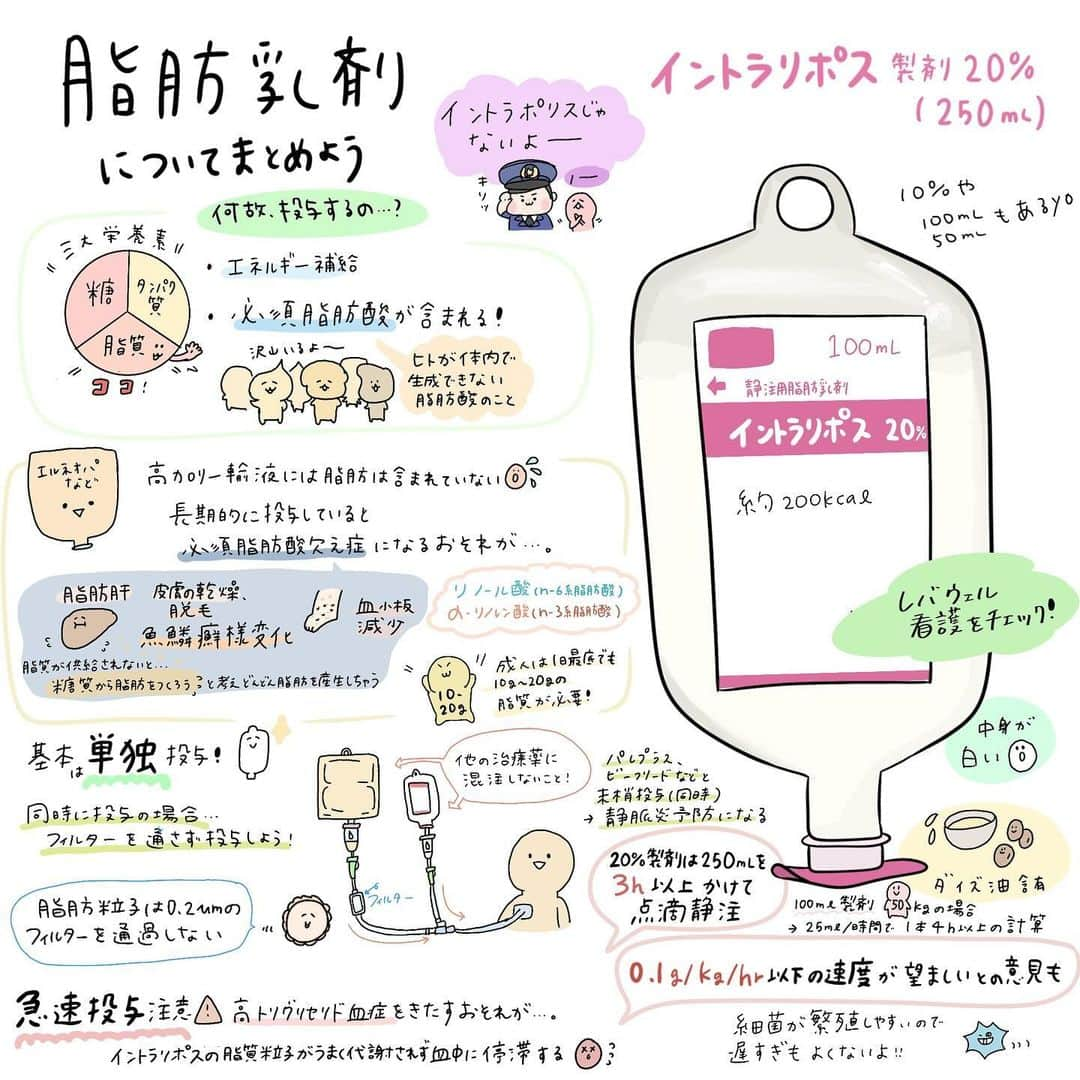 脂肪乳剤
についてまとめよう
イントラポリスじゃ
ないよー
キリッ
ノー
イントラリポス 製剤 20%
(250mL)
10%や
100mL
50mL
もあるyo
何故、投与するの…?
三大栄養素
糖
タンパク
質
脂質
ココ!
・エネルギー補給
・必須脂肪酸が含まれる!
沢山いるよ〜
ヒトが体内で
生成できない
脂肪酸のこと
100mL
静注用脂肪乳剤
イントラリポス 20%
約200kcal
エルネオパ
など
高カロリー輸液には脂肪は含まれていない
長期的に投与していると
必須脂肪酸欠乏症になるおそれが…。
脂肪肝
皮膚の乾燥、
脱毛
魚鱗癬様変化
血小板
減少
脂質が供給されないと…
糖質から脂肪をつくろう と考えどんどん脂肪を産生しちゃう
リノール酸(n-6系脂肪酸)
α-リノレン酸(n-3系脂肪酸)
10-
20g
成人は1日最低でも
10g〜20gの
脂質が必要!
レバウェル
看護をチェック!
中身が
白い
ダイズ油含有
基本は単独投与!
同時に投与の場合…
フィルターを通さず投与しよう!
脂肪粒子は0.2μmの
フィルターを通過しない
フィルター
他の治療薬に
混注しないこと!
パレプラス、
ビーフリードなどと
末梢投与(同時)
→ 静脈炎予防になる
20%製剤は250mLを
3h以上かけて
点滴静注
100ml製剤 50kgの場合
→ 25ml/時間で1本4h以上の計算
0.1g/kg/hr以下の速度が望ましいとの意見も
細菌が繁殖しやすいので
遅すぎもよくないよ!!
急速投与注意 高トリグリセリド血症をきたすおそれが…。
イントラリポスの脂質粒子がうまく代謝されず血中に停滞する